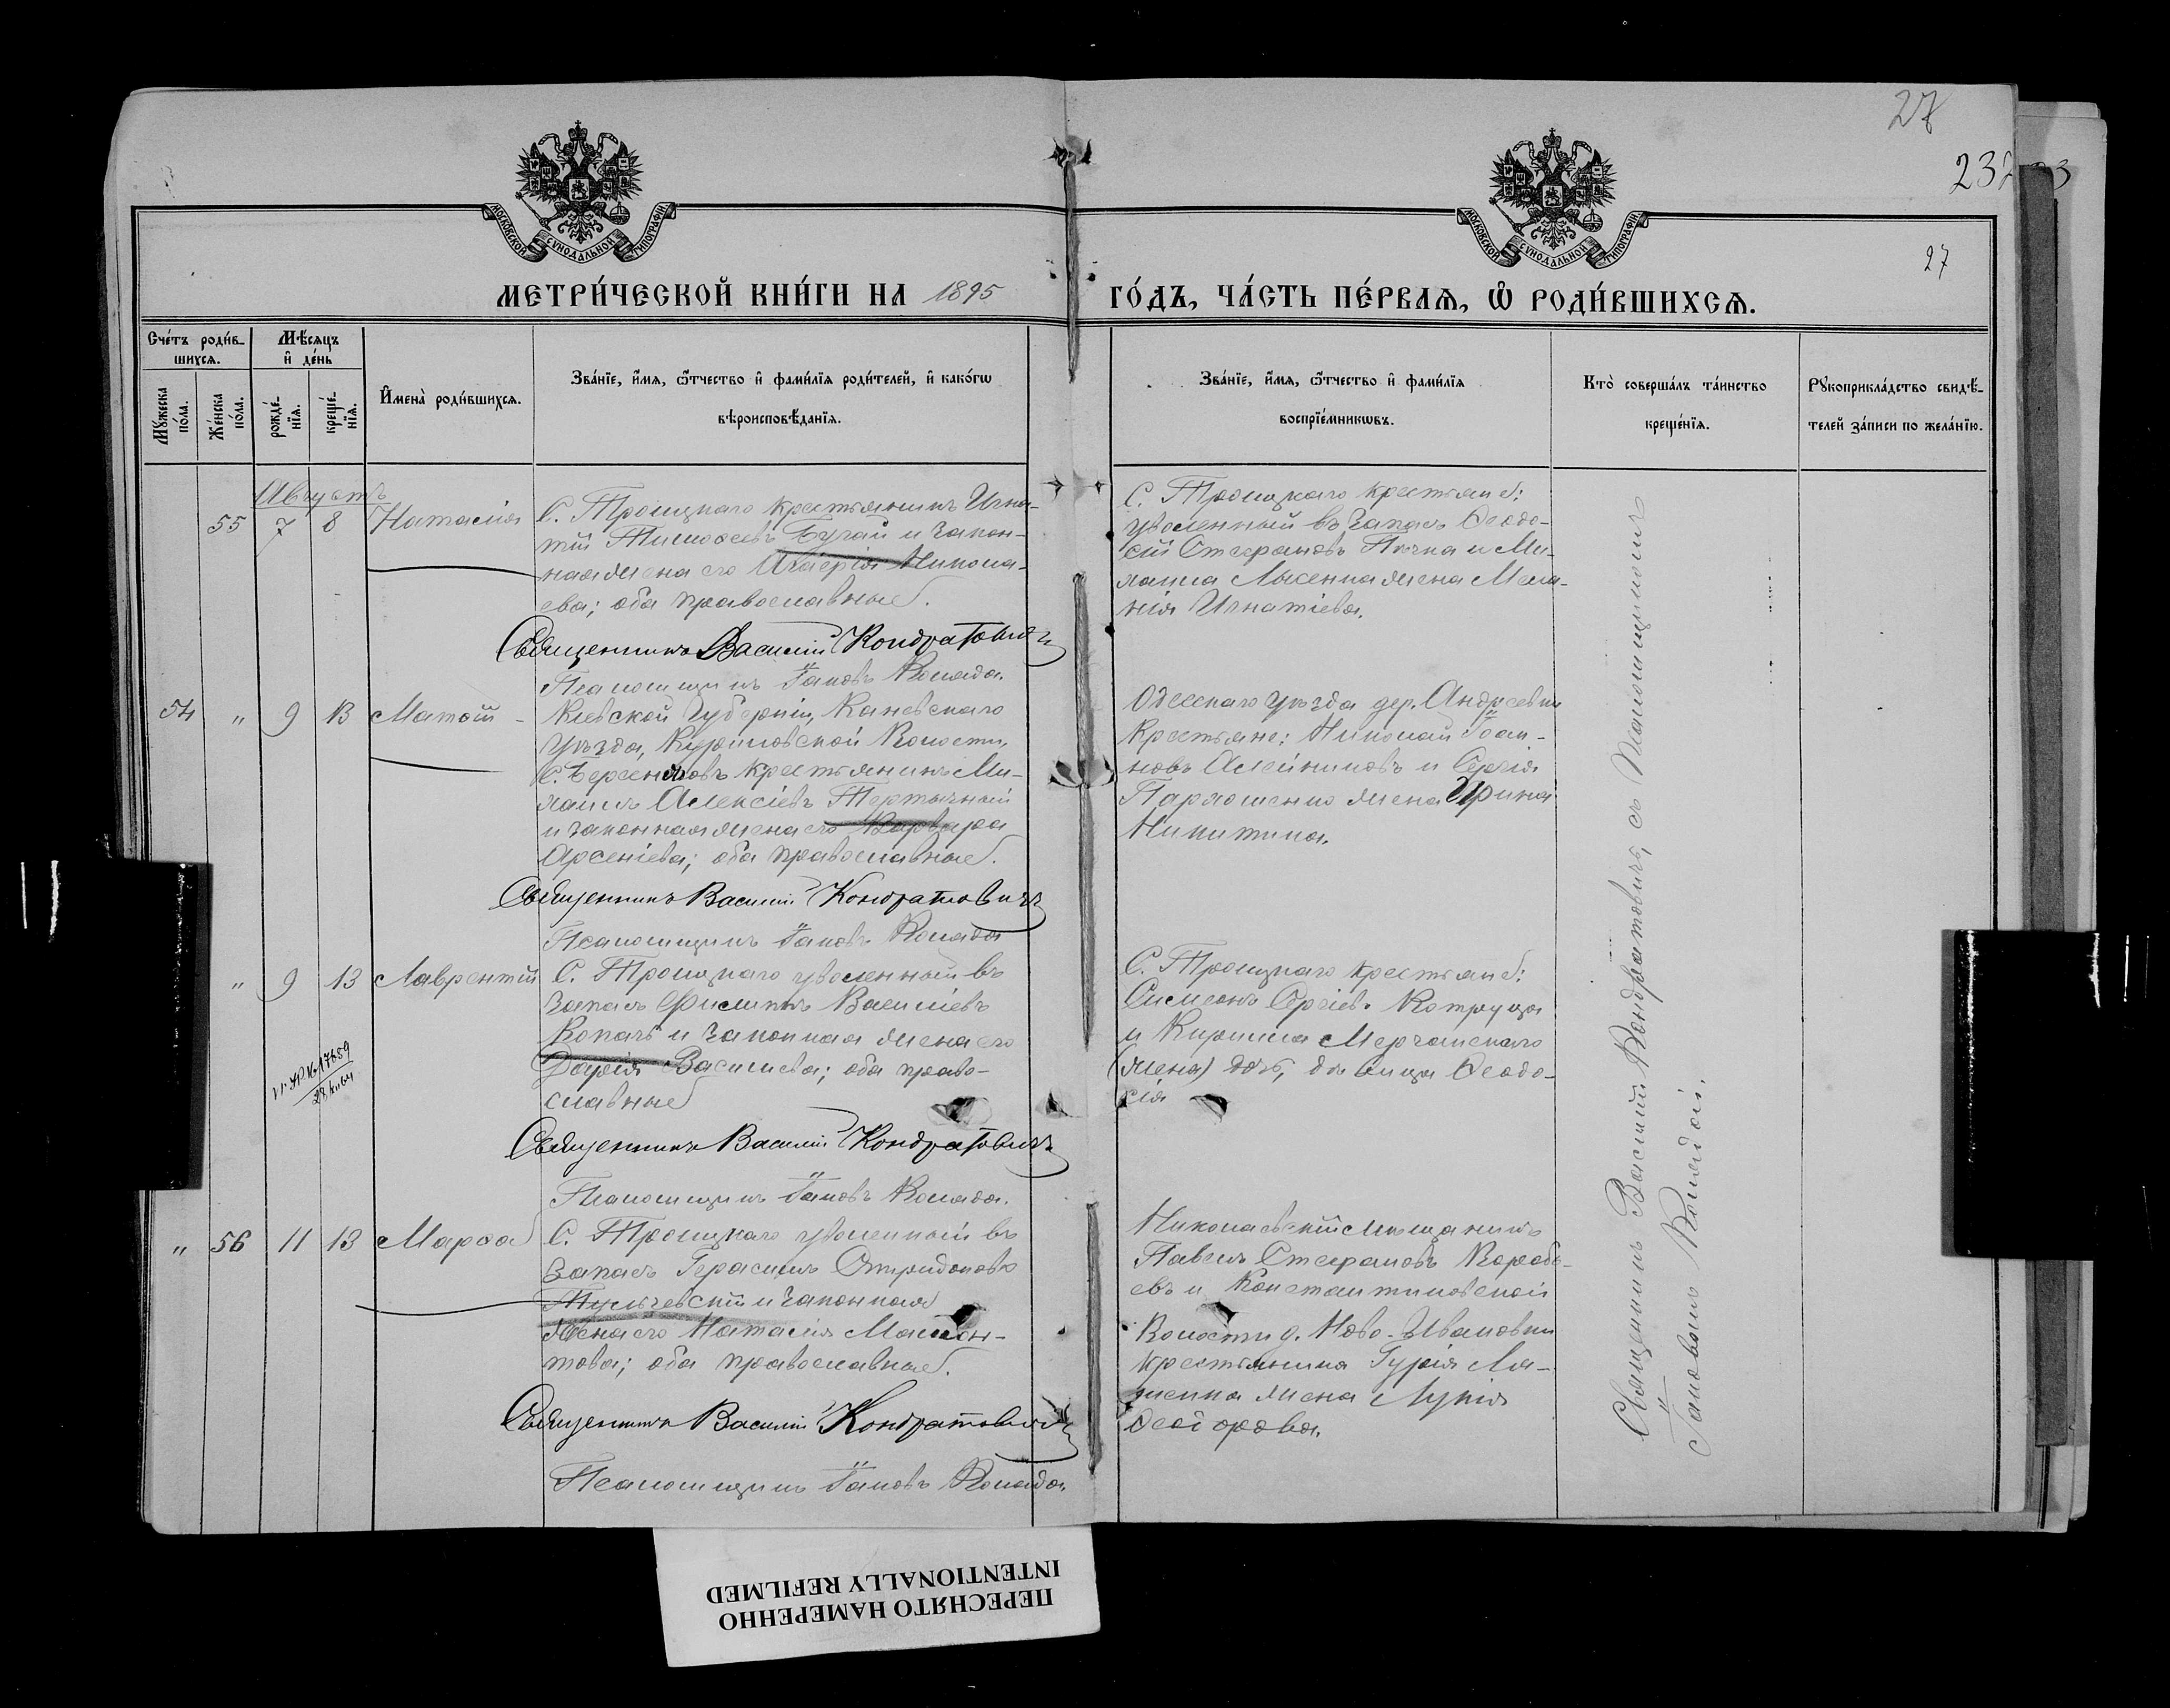 27
232
27
МОСКОВСКОЙ СѴНОДАЛЬНОЙ ТИПОГРАФІИ
МОСКОВСКОЙ СѴНОДАЛЬНОЙ ТИПОГРАФІИ
МЕТРИ́ЧЕСКОЙ КНИ́ГИ НА 1895
ГО́ДЪ, ЧА́СТЬ ПЕ́РВАѦ, Ѡ҆ РОДИ́ВШИХСѦ.
Сче́тъ роди́в-
шихсѧ.
Мꙋ́жеска по́ла.
Же́нска по́ла.
Мѣ́сѧцъ
и҆ де́нь
рожде́-
нїѧ.
креще́-
нїѧ.
И҆мена̀ роди́вшихсѧ.
Зва́нїе, и҆́мѧ, ѻ҆́тчество и҆ фами́лїѧ роди́телей, и҆ како́гѡ
вѣроисповѣ́данїѧ.
Зва́нїе, и҆́мѧ, ѻ҆́тчество и҆ фами́лїѧ
воспрїе́мникѡвъ.
Кто̀ соверша́лъ та́инство
креще́нїѧ.
Рꙋкоприкла́дство свидѣ́-
телей за́писи по жела́нїю.
Августъ
55 7 8 Наталія
С. Троицкаго крестьянинъ Игна-
тій Тимоѳеевъ Бугай и закон-
ная жена его Николa-
ева; оба православные.
Священникъ Василій Кондратовичъ
Псаломщикъ Іаковъ Коляда.
С. Троицкаго крестьяне:
уволенный въ запасъ Ѳеодо-
сій Стефановъ и Ми-
хаила Лысенка жена Мела-
нія Игнатіева.
54 " 9 13 Матѳій
Кіевской Губерніи, Каневскаго
Уѣзда, Волости,
С. крестьянинъ Ми-
хаилъ Алексіевъ Тертычный
и законная жена его Варвара
Арсеніева; оба православные.
Священникъ Василій Кондратовичъ
Псаломщикъ Іаковъ Коляда
Одесскаго уѣзда дер. Андреевки
крестьяне: Николай Іоан-
новъ Алейниковъ и Сергія
Пархоменко жена Ирина
Никитина.
" 9 13 Лаврентій
С. Троицкаго уволенный въ
запасъ Филиппъ Василіевъ
Копачъ и законная жена его
Дарія Василіева; оба право-
славные
Священникъ Василій Кондратовичъ
Псаломщикъ Іаковъ Коляда.
С. Троицкаго крестьяне:
Симеонъ Сергіевъ Котруца
и Кирилла
(жена) дочь, дѣвица Ѳеодо-
сія
" 56 11 13 Марѳа
С. Троицкаго уволенный въ
запасъ Герасимъ Спиридоновъ
и законная
жена его Наталія Мамон-
това; оба православные.
Священникъ Василій Кондратовичъ
Псаломщикъ Іаковъ Коляда.
Николаевскій мѣщанинъ
Павелъ Стефановъ Коробь-
евъ и Константиновской
Волости д. Ново-Ивановки
крестьянина Гурія Ля-
шенка жена Лукія
Ѳеодорова.
Священникъ Василій Кондратовичъ, съ Псаломщикомъ
Іаковомъ Колядой.
ПЕРЕСНЯТО НАМЕРЕННО
INTENTIONALLY REFILMED